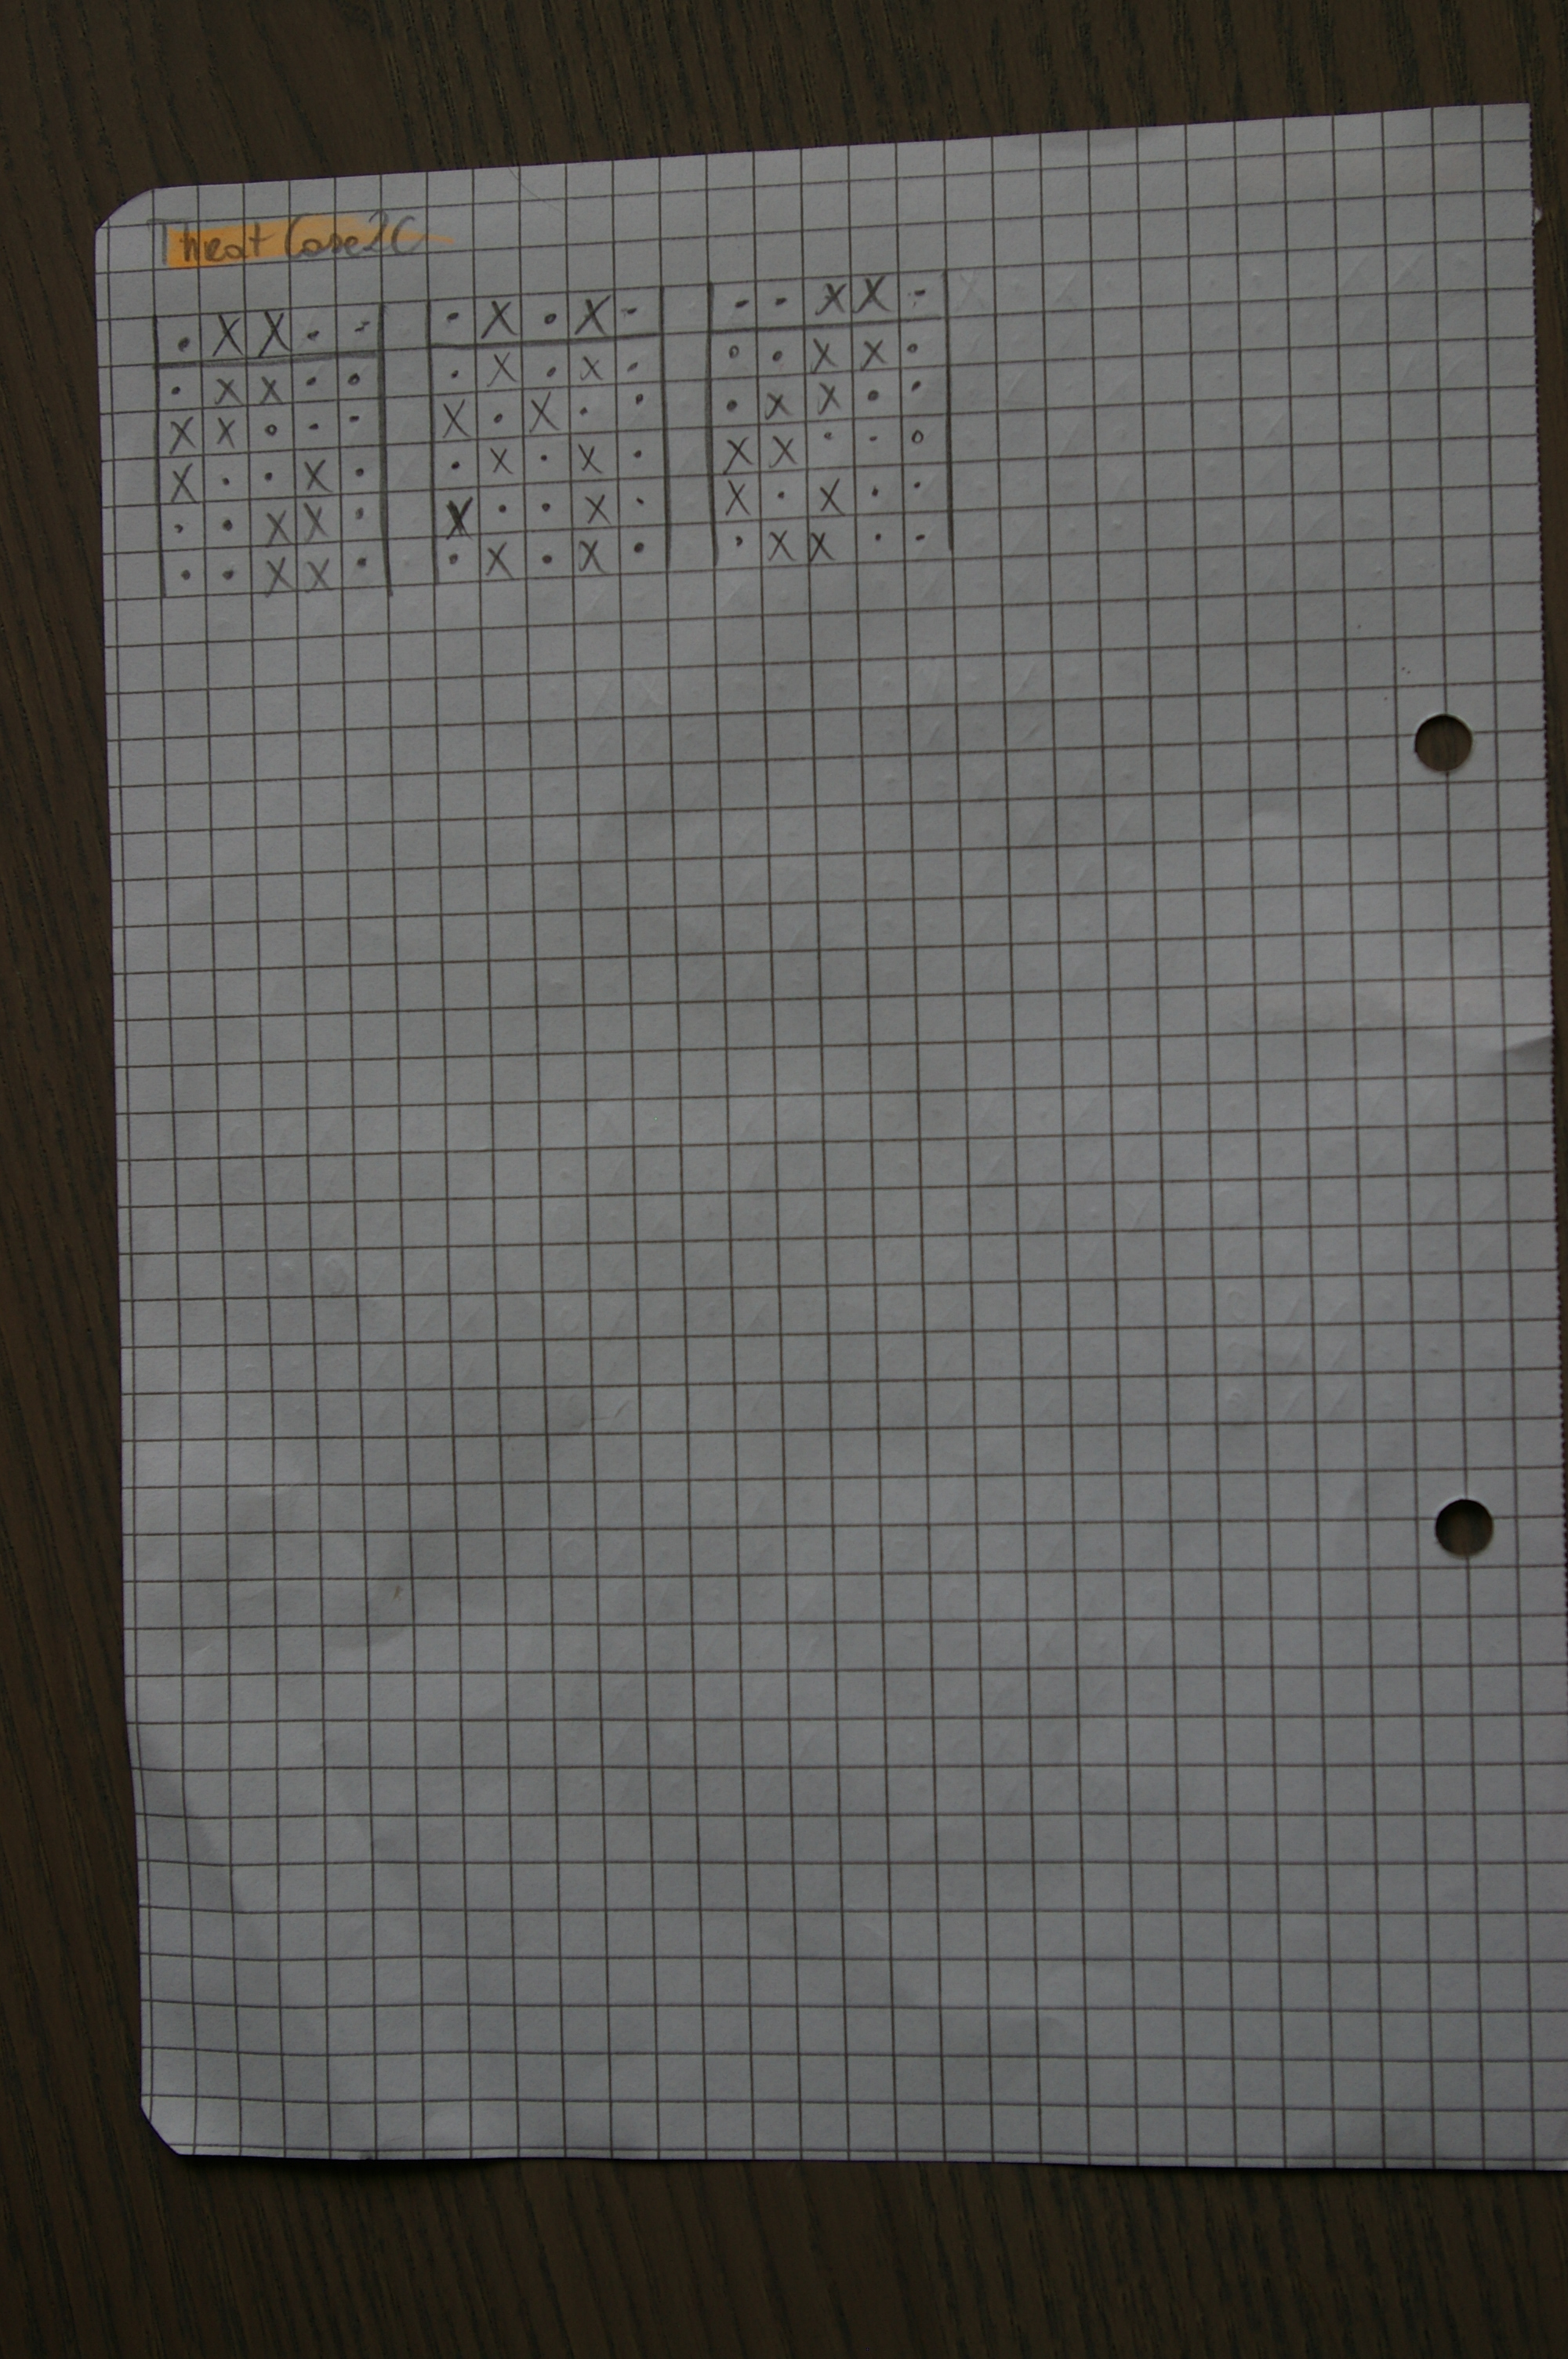 Threat Case 2C
. X X . - - X . X - - - X X -
. X X . . . X . X . . . X X .
X X . . - X . X . . . X X . .
X . . X . . X . X . X X . - .
. . X X . X . . X . X . X . .
. . X X . . X . X . . X X . .